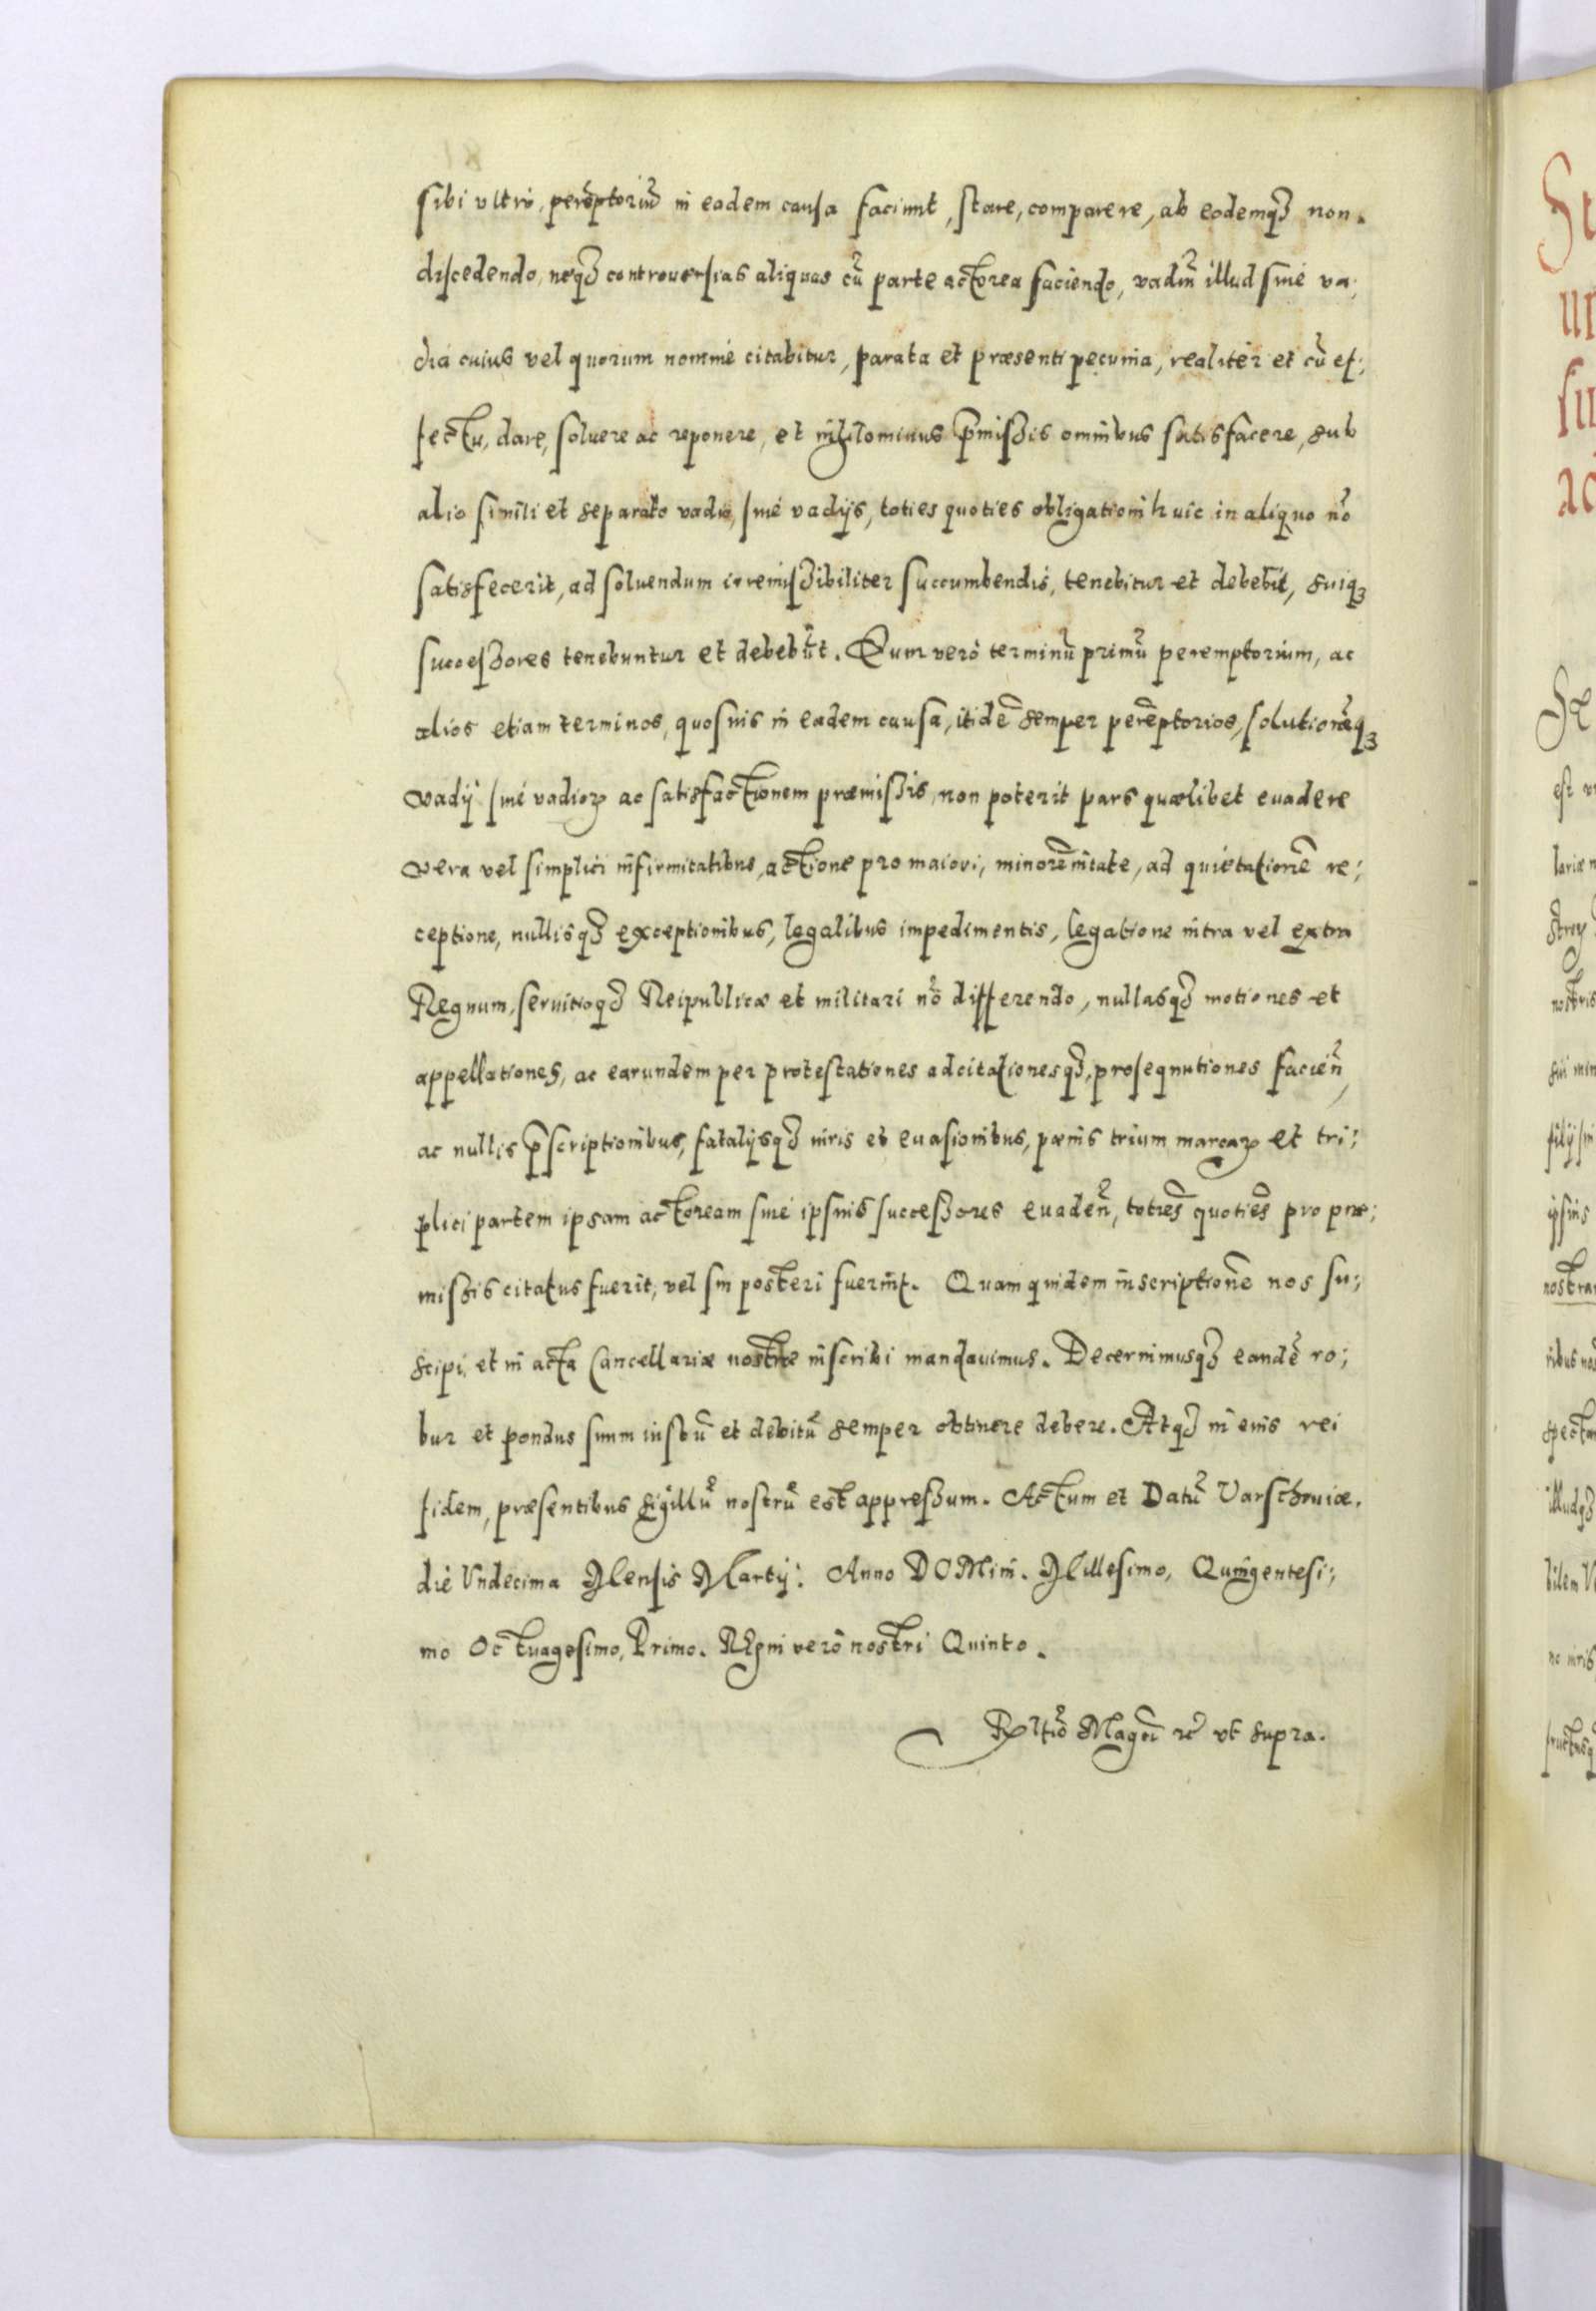 sibi ultrò, perēptoriū in eadem causa faciunt, stare, comparere, ab eodemq3 non
discedendo, neq3 controuersias aliquas cū parte actorea faciendo, vadiū illud siue va;
dia cuius vel quorum nomine citabitur, parata et præsenti pecunia, realiter et cū ef;
fectu, dare, soluere ac reponere, et nihilominus p̄missis omnibus satisfacere, sub
alio simili et separato vadio, siue vadijs, toties quoties obligationi huic in aliquo nō
satisfecerit, ad soluendum irremissibiliter succumbendis, tenebitur et debebit, suiq3
successores tenebuntur et debebūt. Quum verò terminū primū peremptorium, ac
alios etiam terminos, quosuis in eadem causa, itidē semper perēptorios, solutionēq3
vadij siue vadioꝝ ac satisfactionem præmissis, non poterit pars quælibet euadere
vera vel simplici infirmitatibus, actione pro maiori, minorēnitate, ad quietationē re;
ceptione, nullisq3 exceptionibus, legalibus impedimentis, legatione intra vel extra
Regnum, seruitioq3 Reipublicæ et militari nō differendo, nullasq3 motiones et
appellationes, ac earundem per protestationes adcitationesq3, prosequutiones facieñ,
ac nullis p̄scriptionibus, fatalijsq3 iuris et euasionibus, pænis trium marcaꝝ et tri;
plici partem ipsam actoream siue ipsius successores euadeñ, toties quoties pro præ;
missis citatus fuerit, vel sui posteri fuerint. Quam quidem inscriptionē nos su;
scipi, et in acta Cancellariæ nostræ inscribi mandauimus. Decernimusq3 eandē ro;
bur et pondus suum iustū et debitū semper obtinere debere. Atq3 in eius rei
fidem, præsentibus sigillū nostrū est appressum. Actum et Datū Varschouiæ.
die Vndecima Mensis Martij: Anno DOMini. Millesimo, Quingentesi;
mo Octuagesimo, Primo. Regni verò nostri Quinto.
Rltiō Magci &c vt supra.